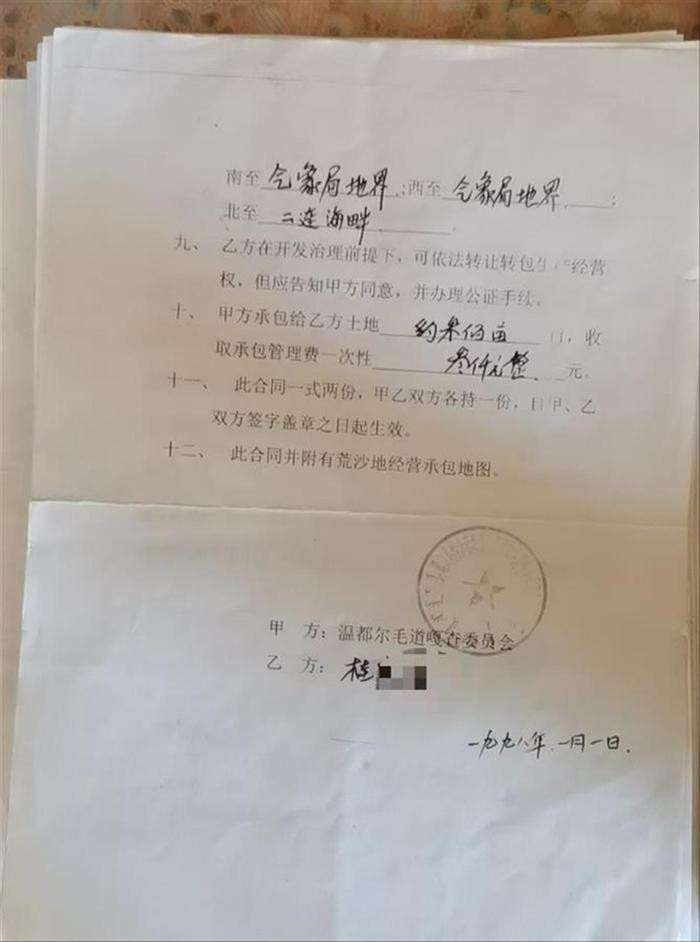 南至气象局地界;西至气象局地界;
北至二连海畔
九、乙方在开发治理前提下,可依法转让转包生产经营
权,但应告知甲方同意,并办理公证手续。
十、甲方承包给乙方土地约柒佰亩 ,收
取承包管理费一次性叁仟元整元。
十一、此合同一式两份,甲乙双方各持一份,自甲、乙
双方签字盖章之日起生效。
十二、此合同并附有荒沙地经营承包地图。
甲 方:温都尔毛道嘎查委员会
乙 方:桂
一九九八年.一月一日.